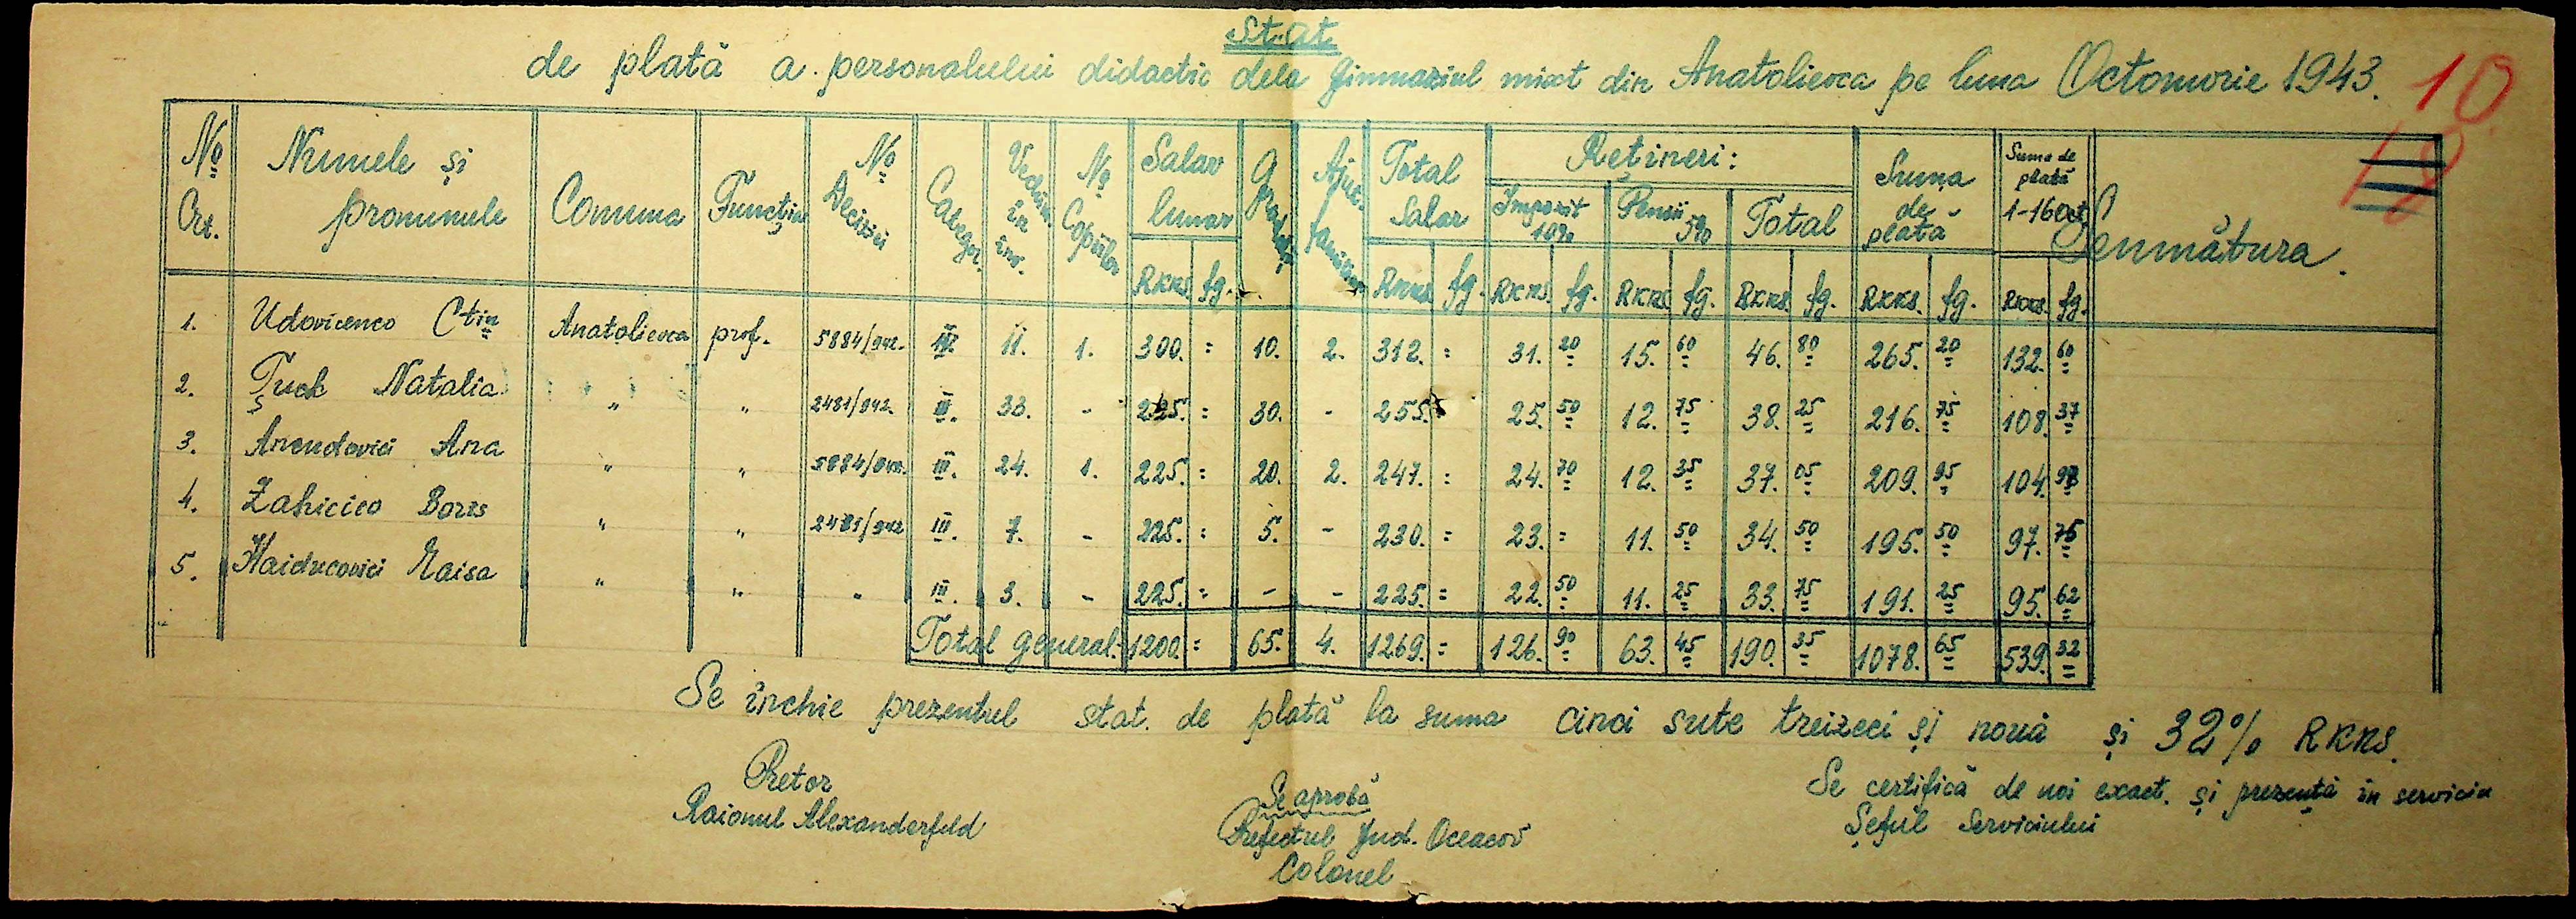 Stat
de plată a personalului didactic dela Gimnaziul mixt din Anatolievca pe luna Octomvrie 1943.
10
No Crt. Numele și pronumele Comuna Funcția No Deciziei Categor. Vechim. în înv. No Copiilor Salar lunar Gradații Ajut. familiar Total Salar Rețineri: Suma de plată Suma de plată 1-16 Oct Semnătura.
Impozit 10% Pensii 5% Total
RKKS. fg. RKKS. fg. RKKS. fg. RKKS. fg. RKKS. fg. RKKS. fg. RKKS. fg.
1. Udovicenco Ctin Anatolievca prof. 5884/942. IV. 11. 1. 300. = 10. 2. 312. = 31. 20 15. 60 46. 80 265. 20 132. 60
2. Țuck Natalia " " 2481/942. III. 33. - 225. = 30. - 255. 25. 50 12. 75 38. 25 216. 75 108. 37
3. Arendovici Ana " " 5884/942. III. 24. 1. 225. = 20. 2. 247. = 24. 70 12. 35 37. 05 209. 95 104. 98
4. Boris " " 2481/942 III. 7. - 225. = 5. - 230. = 23. = 11. 50 34. 50 195. 50 97. 75
5. Haiducovici Raisa " " " III. 3. - 225. = - - 225. = 22. 50 11. 25 33. 75 191. 25 95. 62
Total general: 1200. = 65. 4. 1269. = 126. 90 63. 45 190. 35 1078. 65 539. 32
Se închie prezentul stat de plată la suma cinci sute treizeci și nouă și 32% RKKS.
Pretor
Raionul Alexanderfeld
Se aprobă
Prefectul Jud. Oceacov
Colonel
Se certifică de noi exact. și prezentă în serviciu
Șeful Serviciului